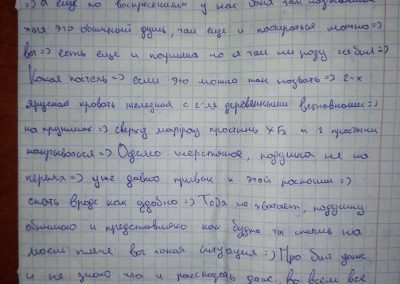 =) А еще по воскресеньям у нас баня так называемая
хотя это обычный душ, там еще и постираться можно =)
вот =) есть еще и парилка но я там ни разу не был =)
Какая постель =) если это можно так назвать =) 2-х
ярусная кровать железная с 2-мя деревянными
на пружинах =) сверху матрац простынь и 2 простыни
накрываться =) Одеяло шерстяное, подушка не из
перьев =) уже давно привык к этой роскоши =)
спать вроде как удобно =) Тебя не хватает, подушку
обнимаю и представляю как будто ты спишь на
моем плече вот такая ситуация =) Про быт даже
и не знаю что и рассказать даже, во всем все